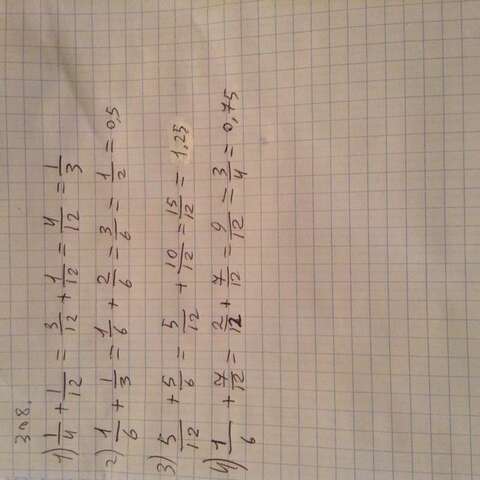 308.
1) 1/4 + 1/12 = 3/12 + 1/12 = 4/12 = 1/3
2) 1/6 + 1/3 = 1/6 + 2/6 = 3/6 = 1/2 = 0,5
3) 5/12 + 5/6 = 5/12 + 10/12 = 15/12 = 1,25
4) 1/6 + 7/12 = 2/12 + 7/12 = 9/12 = 3/4 = 0,75